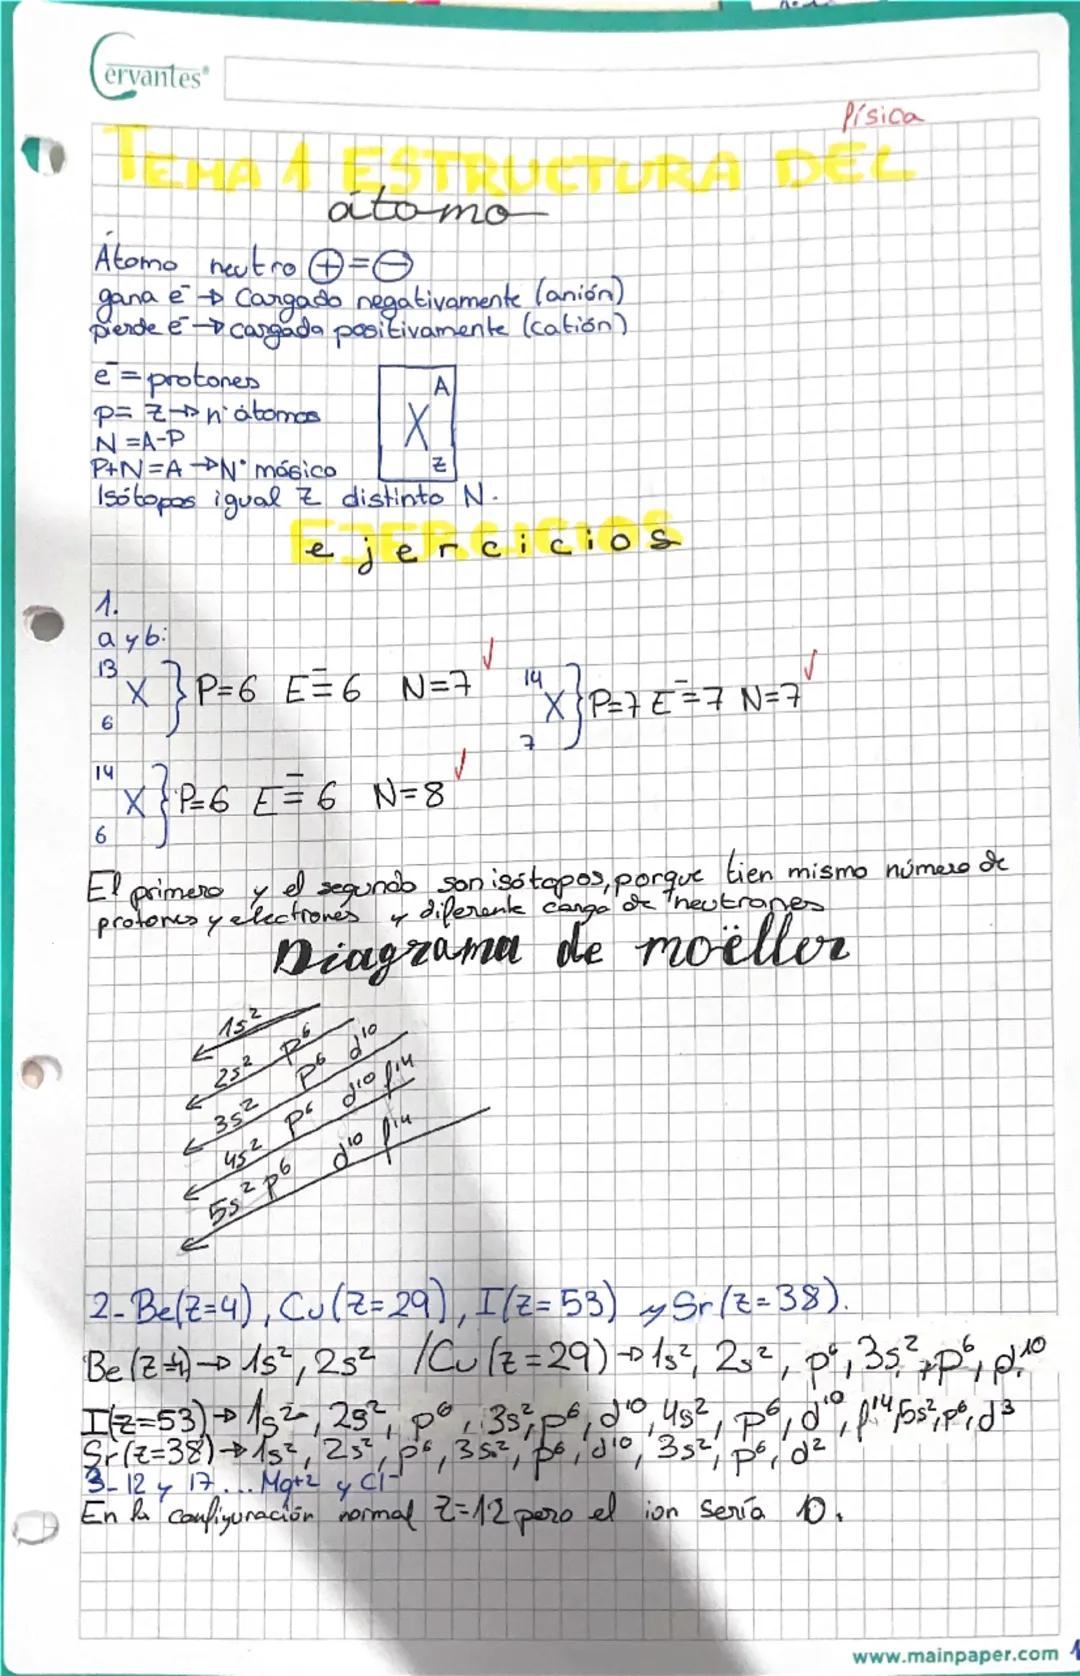 Cervantes®
física
TEMA 1 ESTRUCTURA DEL
átomo
Átomo neutro ⊕=⊖
gana e⁻ → Cargado negativamente (anión)
pierde e⁻ → cargada positivamente (catión)
e⁻ = protones
p= Z → nº átomos
N = A-P
P+N = A → Nº másico
A
X
Z
Isótopos igual Z distinto N.
EJERCICIOS
ejercicios
1.
a y b:
¹³₆X } P=6 E⁻=6 N=7 ✓ ¹⁴₇X } P=7 E⁻=7 N=7 ✓
¹⁴₆X } P=6 E⁻=6 N=8 ✓
El primero y el segundo son isótopos, porque tien mismo número de
protones y electrones y diferente carga de neutrones
Diagrama de moëller
1s²
2s² p⁶
3s² p⁶ d¹⁰
4s² p⁶ d¹⁰ f¹⁴
5s² p⁶ d¹⁰ f¹⁴
2- Be(Z=4), Cu(Z=29), I(Z=53) y Sr(Z=38).
Be (Z=4) → 1s², 2s² / Cu (Z=29) → 1s², 2s², p⁶, 3s², p⁶, d¹⁰
I(Z=53) → 1s², 2s², p⁶, 3s², p⁶, d¹⁰, 4s², p⁶, d¹⁰, f¹⁴, 5s², p⁶, d³
Sr(Z=38) → 1s², 2s², p⁶, 3s², p⁶, d¹⁰, 3s², p⁶, d²
3- 12 y 17... Mg+2 y Cl⁻
En la configuración normal Z=12 pero el ion sería 10.
www.mainpaper.com 1